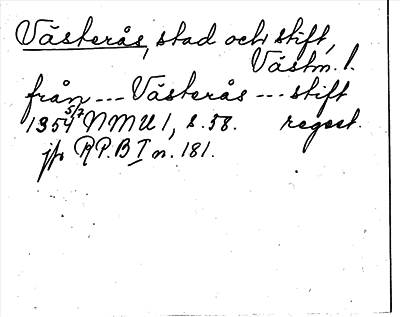 Västerås, stad och stift,
Västm. l.
från --- Västerås --- stift
1354 5/7 NMU 1, s. 58. regest.
jfr RP. B I n. 181.